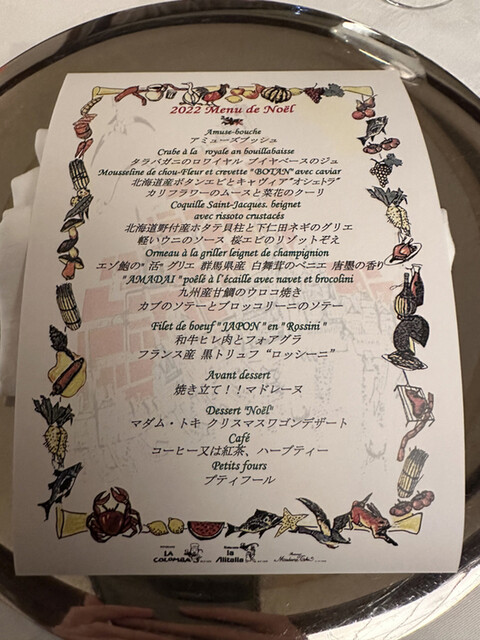 2022 Menu de Noël
Amuse-bouche
アミューズブッシュ
Crabe à la royale an bouillabaisse
タラバガニのロワイヤル ブイヤベースのジュ
Mousseline de chou-Fleur et crevette "BOTAN" avec caviar
北海道産ボタンエビとキャヴィア"オシェトラ"
カリフラワーのムースと菜花のクーリ
Coquille Saint-Jacques. beignet
avec rissoto crustacés
北海道野付産ホタテ貝柱と下仁田ネギのグリエ
軽いウニのソース 桜エビのリゾットぞえ
Ormeau à la griller leignet de champignion
エゾ鮑の"活"グリエ 群馬県産 白舞茸のベニエ 唐墨の香り
"AMADAI" poêlè à l'écaille avec navet et brocolini
九州産甘鯛のウロコ焼き
カブのソテーとブロッコリーニのソテー
Filet de boeuf "JAPON" en "Rossini"
和牛ヒレ肉とフォアグラ
フランス産 黒トリュフ "ロッシーニ"
Avant dessert
焼き立て!!マドレーヌ
Dessert "Noël"
マダム・トキ クリスマスワゴンデザート
Café
コーヒー又は紅茶、ハーブティー
Petits fours
プティフール
LA COLOMBA
la Alitalia